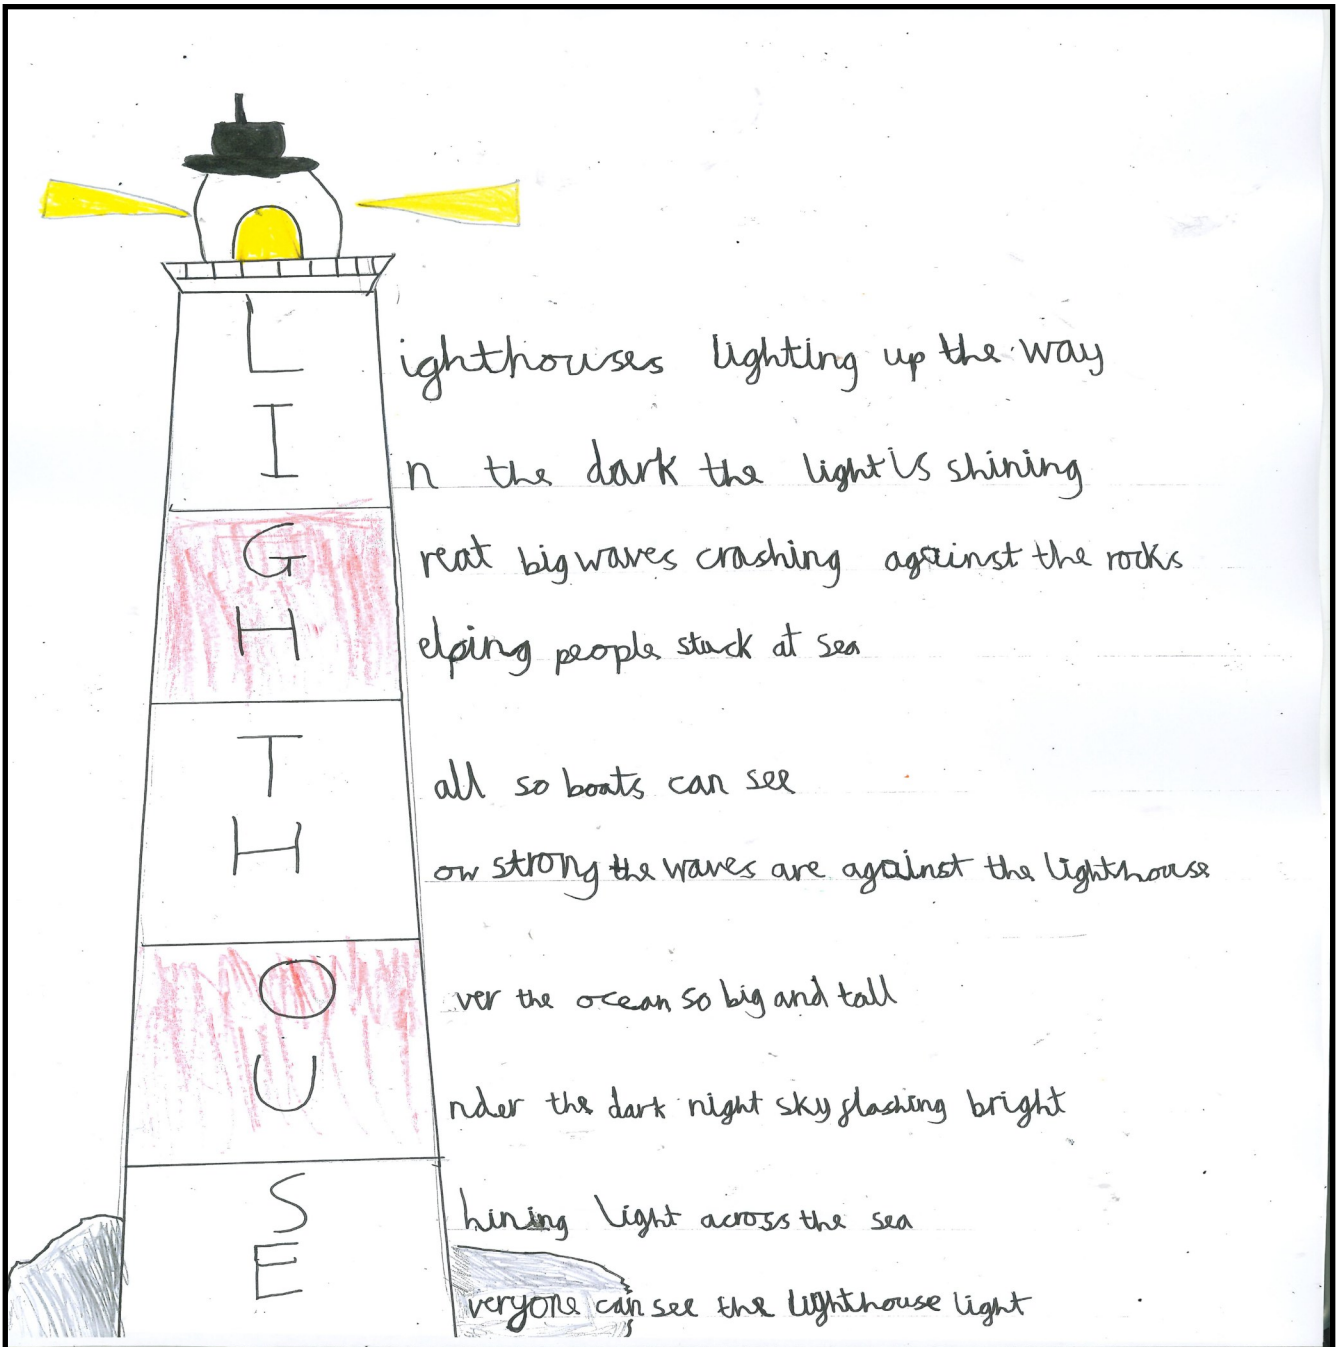 Lighthouses lighting up the way
In the dark the light is shining
Great big waves crashing against the rocks
Helping people stuck at sea
Tall so boats can see
How strong the waves are against the lighthouse
Over the ocean so big and tall
Under the dark night sky flashing bright
Shining light across the sea
Everyone can see the lighthouse light